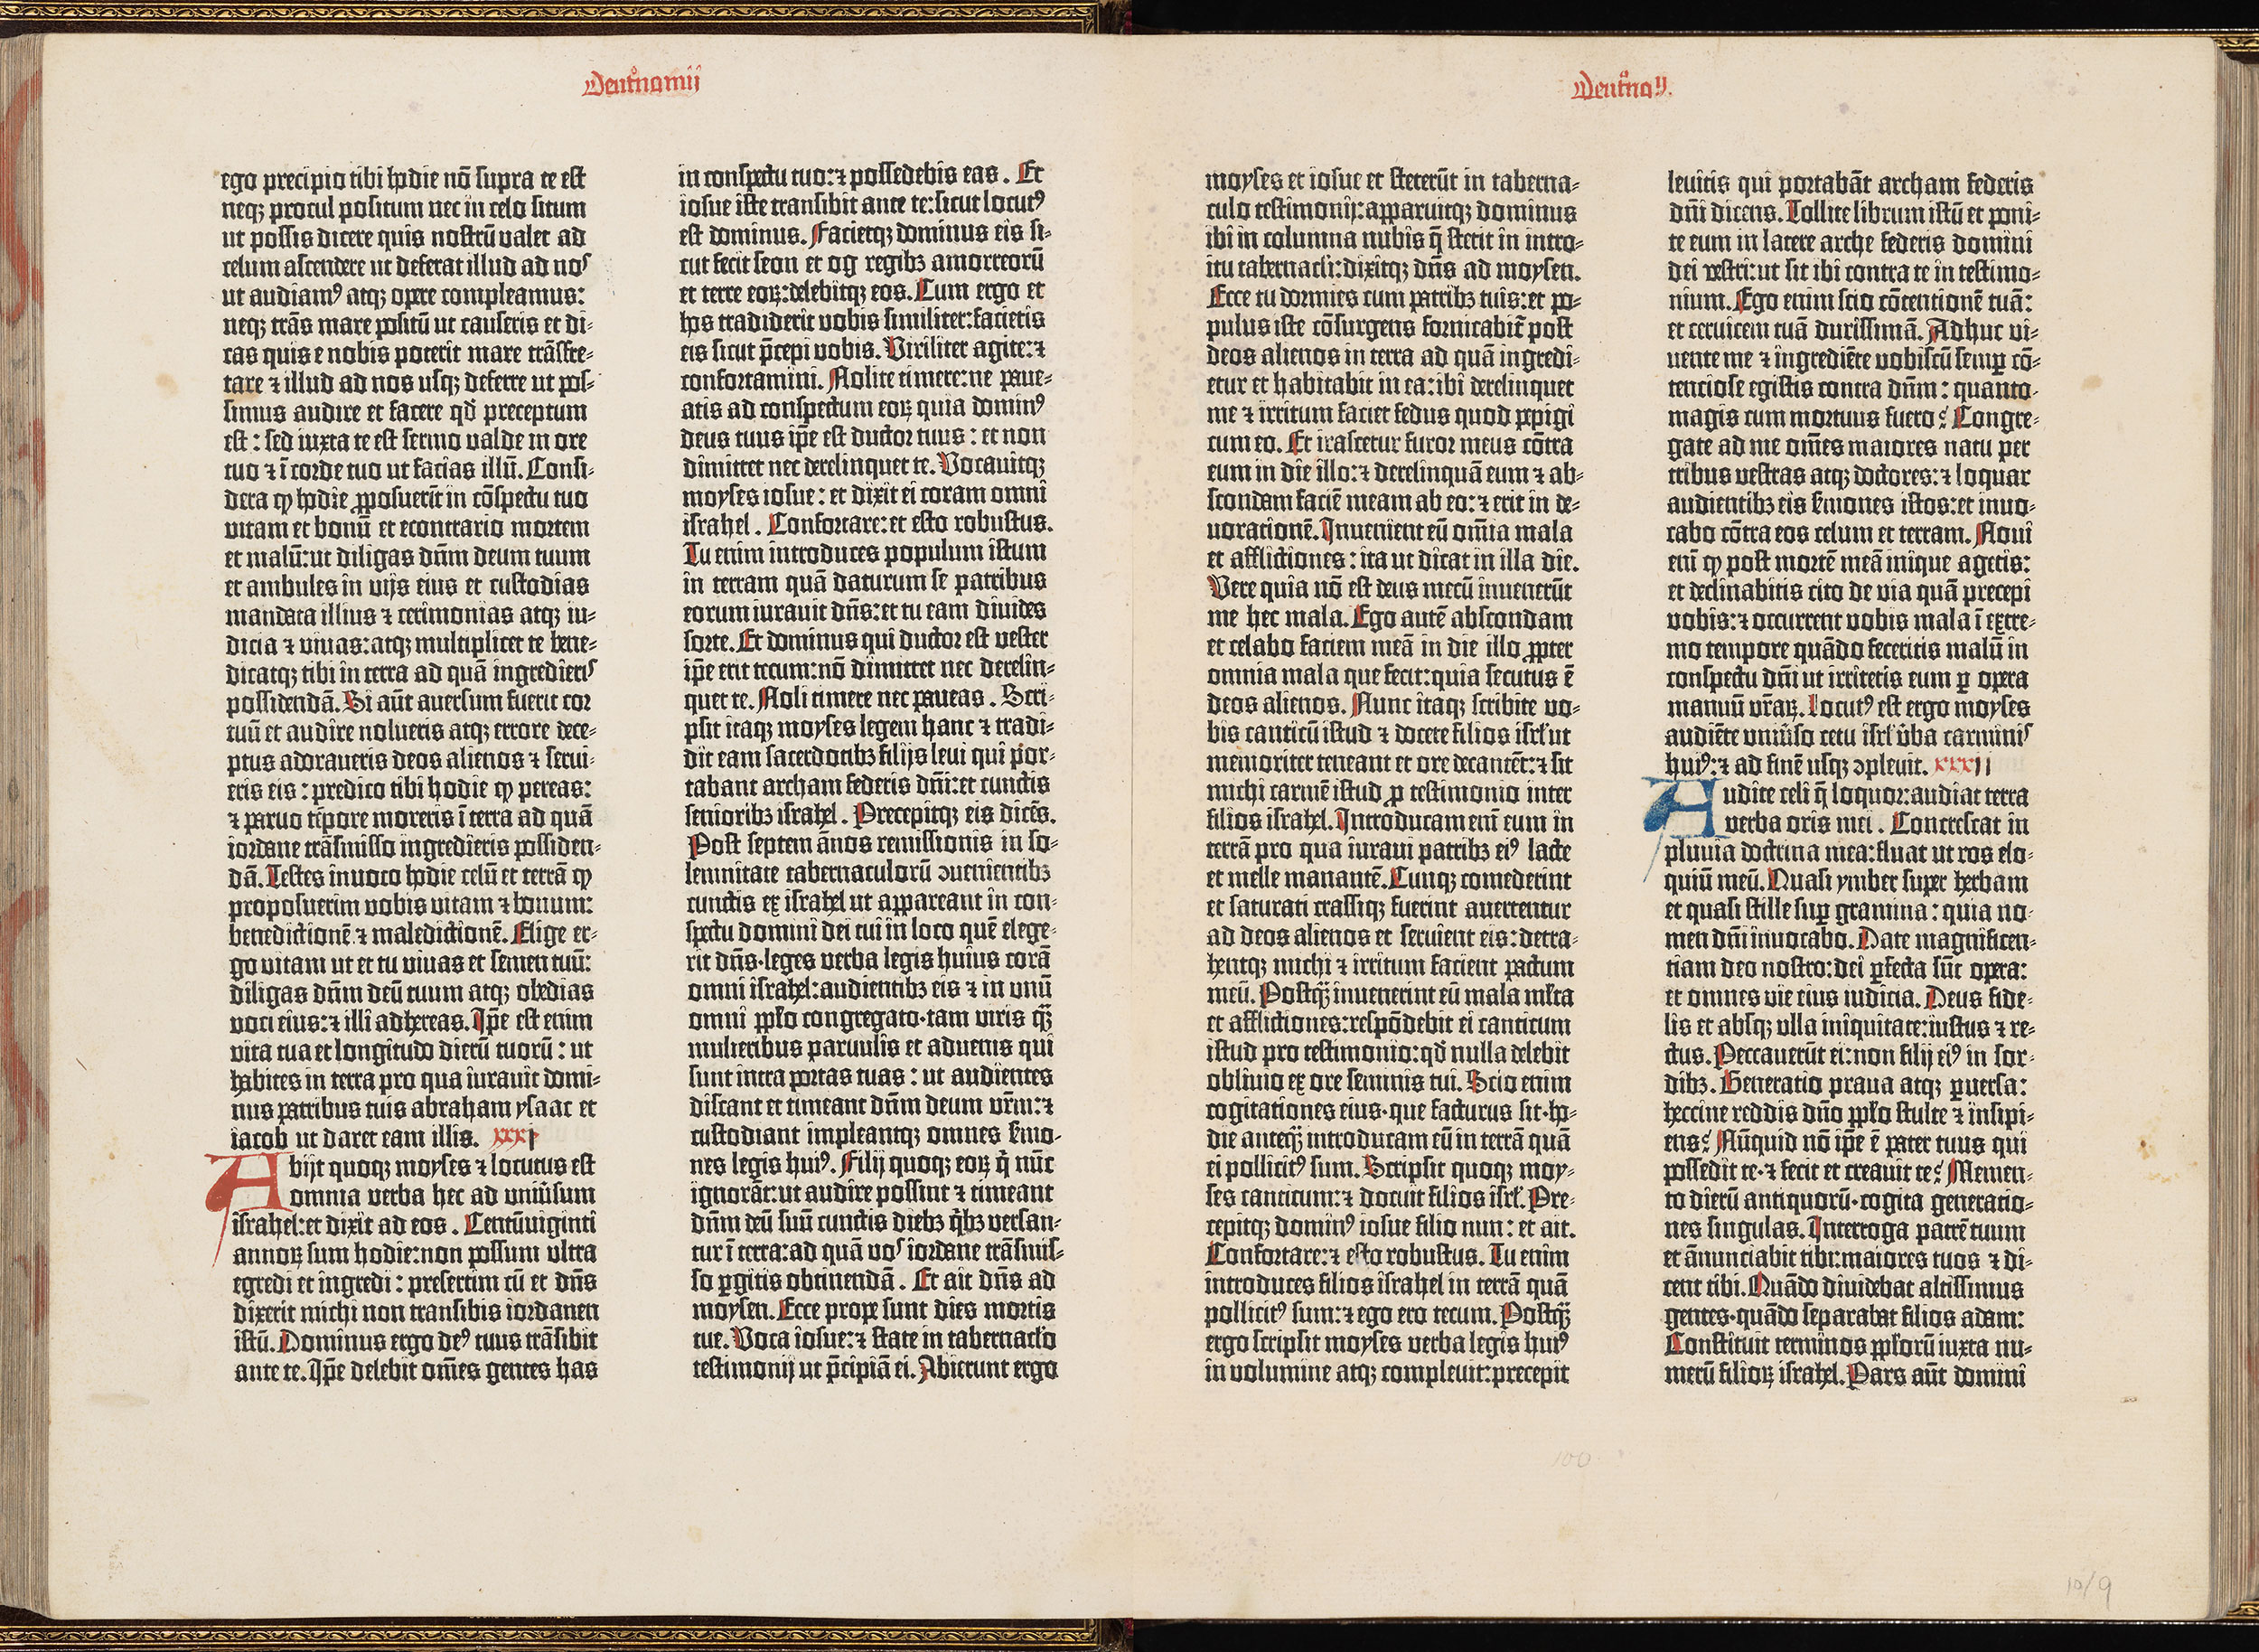 Deut͛nomij
ego precipio tibi hodie nō supra te est
neqꝫ procul positum nec in celo situm
ut possis dicere quis nostrū valet ad
celum ascendere ut deferat illud ad nos
ut audiamꝰ atqꝫ opere compleamus:
neqꝫ trās mare positū ut causeris et di-
cas quis e nobis poterit mare trāsfre-
tare ⁊ illud ad nos usqꝫ deferre ut pos-
simus audire et facere qd̛ preceptum
est: sed iuxta te est sermo valde in ore
tuo ⁊ ī corde tuo ut facias illū. Consi-
dera ꝙ hodie ꝓposuerī in cōspectu tuo
vitam et bonū et econtrario mortem
et malū: ut diligas dn̄m deum tuum
et ambules in vijs eius et custodias
mandata illius ⁊ cerimonias atqꝫ iu-
dicia ⁊ vivas: atqꝫ multiplicet te bene-
dicatqꝫ tibi in terra ad quā ingredieris
possidendā. Si aūt aversum fuerit cor
tuū et audire nolueris atqꝫ errore dece-
ptus adoraveris deos alienos ⁊ servi-
eris eis: predico tibi hodie ꝙ pereas:
⁊ parvo tēpore moreris ī terra ad quā
iordane trāsmisso ingredieris possiden-
dā. Testes invoco hodie celū et terrā ꝙ
proposuerim vobis vitam ⁊ bonum:
benedictionē ⁊ maledictionē. Elige er-
go vitam ut et tu vivas et semen tuū:
diligas dn̄m deū tuum atqꝫ obedias
voci eius: ⁊ illi adhereas. Ip̄e est enim
vita tua et longitudo dierū tuorū: ut
habites in terra pro qua iuravit domi-
nus patribus tuis abraham ysaac et
iacob ut daret eam illis. xxxi
Abijt quoqꝫ moyses ⁊ locutus est
omnia verba hec ad univ̛sum
israhel: et dixit ad eos. Centūviginti
annoꝝ sum hodie: non possum ultra
egredi et ingredi: presertim cū et dn̄s
dixerit michi non transibis iordanen
istū. Dominus ergo deꝰ tuus trāsibit
ante te. Ip̄e delebit om̄es gentes has
in conspectu tuo: ⁊ possedebis eas. Et
iosue iste transibit ante te: sicut locutꝰ
est dominus. Facietqꝫ dominus eis si-
cut fecit seon et og regibꝫ amorreorū
et terre eoꝝ: delebitqꝫ eos. Cum ergo et
hos tradiderit vobis similiter: facietis
eis sicut p̄cepi vobis. Viriliter agite: ⁊
confortamini. Nolite timere: ne pave-
atis ad conspectum eoꝝ quia dominꝰ
deus tuus ip̄e est ductor tuus: et non
dimittet nec derelinquet te. Vocavitqꝫ
moyses iosue: et dixit ei coram omni
israhel. Confortare: et esto robustus.
Tu enim introduces populum istum
in terram quā daturum se patribus
eorum iuravit dn̄s: et tu eam divides
sorte. Et dominus qui ductor est vester
ip̄e erit tecum: nō dimittet nec derelin-
quet te. Noli timere nec paveas. Scri-
psit itaqꝫ moyses legem hanc ⁊ tradi-
dit eam sacerdotibꝫ filijs levi qui por-
tabant archam federis dn̄i: et cunctis
senioribꝫ israhel. Precepitqꝫ eis dicēs.
Post septem ānos remissionis in so-
lemnitate tabernaculorū ↄvenientibꝫ
cunctis ex israhel ut appareant in con-
spectu domini dei tui in loco quē elege-
rit dn̄s· leges verba legis huius corā
omni israhel: audientibꝫ eis ⁊ in unū
omni pp̄lo congregato· tam viris qꝫ̄
mulieribus parvulis et advenis qui
sunt intra portas tuas: ut audientes
discant et timeant dn̄m deum vr̄m: ⁊
custodiant impleantqꝫ omnes s̛mo-
nes legis huiꝰ. Filij quoqꝫ eoꝝ q̄ nūc
ignorāt: ut audire possint ⁊ timeant
dn̄m deū suū cunctis diebꝫ q̄bꝫ versan-
tur ī terra: ad quā vos iordane trāsmis-
so ꝑgitis obtinendā. Et ait dn̄s ad
moysen. Ecce prope sunt dies mortis
tue. Voca iosue: ⁊ state in tabernac̄lo
testimonij ut p̄cipiā ei. Abierunt ergo
Deut͛noij.
moyses et iosue et steterūt in taberna-
culo testimonij: apparuitqꝫ dominus
ibi in columna nubis q̄ stetit in intro-
itu tabernac̄li: dixitqꝫ dn̄s ad moysen.
Ecce tu dormies cum patribꝫ tuis: et po-
pulus iste cōsurgens fornicabit̄ post
deos alienos in terra ad quā ingredi-
etur et habitabit in ea: ibi derelinquet
me ⁊ irritum faciet fedus quod pepigi
cum eo. Et irascetur furor meus cōtra
eum in die illo: ⁊ derelinquā eum ⁊ ab-
scondam faciē meam ab eo: ⁊ erit in de-
vorationē. Invenient eū om̄ia mala
et afflictiones: ita ut dicat in illa die.
Vere quia nō est deus mecū invenerūt
me hec mala. Ego autē abscondam
et celabo faciem meā in die illo ꝓpter
omnia mala que fecit: quia secutus ē
deos alienos. Nunc itaqꝫ scribite vo-
bis canticū istud ⁊ docete filios isrl̄ ut
memoriter teneant et ore decantēt: ⁊ sit
michi carmē istud ꝓ testimonio inter
filios israhel. Introducam enī eum in
terrā pro qua iuravi patribꝫ eiꝰ lacte
et melle manantē. Cunqꝫ comederint
et saturati crassiqꝫ fuerint avertentur
ad deos alienos et servient eis: detra-
hentqꝫ michi ⁊ irritum facient pactum
meū. Postqꝫ̄ invenerint eū mala ml̄ta
et afflictiones: respōdebit ei canticum
istud pro testimonio: qd̛ nulla delebit
oblivio ex ore seminis tui. Scio enim
cogitationes eius· que facturus sit· ho-
die anteqꝫ̄ introducam eū in terrā quā
ei pollicitꝰ sum. Scripsit quoqꝫ moy-
ses canticum: ⁊ docuit filios isrl̄. Pre-
cepitqꝫ dominꝰ iosue filio nun: et ait.
Confortare: ⁊ esto robustus. Tu enim
introduces filios israhel in terrā quā
pollicitꝰ sum: ⁊ ego ero tecum. Postqꝫ̄
ergo scripsit moyses verba legis huiꝰ
in volumine atqꝫ complevit: precepit
levitis qui portabāt archam federis
dn̄i dicens. Tollite librum istū et poni-
te eum in latere arche federis domini
dei vestri: ut sit ibi contra te in testimo-
nium. Ego enim scio cōtentionē tuā:
et cervicem tuā durissimā. Adhuc vi-
vente me ⁊ ingrediēte vobiscū semꝑ cō-
tenciose egistis contra dn̄m: quanto
magis cum mortuus fuero? Congre-
gate ad me om̄es maiores natu per
tribus vestras atqꝫ doctores: ⁊ loquar
audientibꝫ eis s̛mones istos: et invo-
cabo cōtra eos celum et terram. Novi
enī ꝙ post mortē meā inique agetis:
et declinabitis cito de via quā precepi
vobis: ⁊ occurrent vobis mala ī extre-
mo tempore quādo feceritis malū in
conspectu dn̄i ut irritetis eum ꝑ opera
manuū vr̄aꝝ. Locutꝰ est ergo moyses
audiēte univ̛so cetu isrl̄ v̛ba carminis
huiꝰ: ⁊ ad finē usqꝫ ↄplevit. xxxii
Audite celi q̄ loquor: audiat terra
verba oris mei. Concrescat in
pluvia doctrina mea: fluat ut ros elo-
quiū meū. Quasi ymber super herbam
et quasi stille suꝑ gramina: quia no-
men dn̄i invocabo. Date magnificen-
tiam deo nostro: dei ꝑfecta sūt opera:
et omnes vie eius iudicia. Deus fide-
lis et absqꝫ ulla iniquitate: iustus ⁊ re-
ctus. Peccaverūt ei: non filij eiꝰ in sor-
dibꝫ. Generatio prava atqꝫ ꝑversa:
heccine reddis dn̄o pp̄lo stulte ⁊ insipi-
ens? Nūquid nō ip̄e ē pater tuus qui
possedit te· ⁊ fecit et creavit te? Memen-
to dierū antiquorū· cogita generatio-
nes singulas. Interroga patrē tuum
et ānunciabit tibi: maiores tuos ⁊ di-
cent tibi. Quādo dividebat altissimus
gentes· quādo separabat filios adam:
Constituit terminos pp̄lorū iuxta nu-
merū filioꝝ israhel. Pars aūt domini
100
10/9